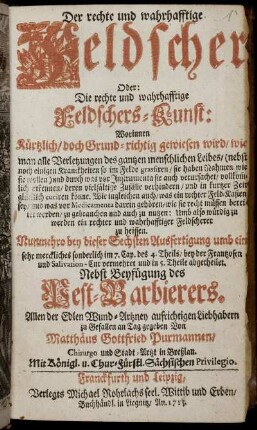 Der rechte und wahrhafftige
Feldscher
Oder:
Die rechte und wahrhafftige
Feldschers-Kunst:
Worinnen
Kürtzlich/ doch Grund-richtig gewiesen wird/ wie
man alle Verletzungen des gantzen menschlichen Leibes/ (nebst
noch einigen Kranckheiten so im Felde grassiren/ sie haben Nahmen wie
sie wollen) und durch was vor Instrumenta sie auch verursachet/ vollkomm-
lich erkennen/ deren vielfältige Zufälle verhindern/ und in kurtzer Zeit
glücklich curiren könne. Wie ingleichen auch/ was ein rechter Feld-Kasten
sey/ und was vor Medicamenta darein gehören/ wie sie recht müssen berei-
tet werden/ zu gebrauchen und auch zu nutzen: Umb also würdig zu
werden ein rechter und wahrhafftiger Feldscherer
zu heissen.
Nunmehro bey dieser Sechsten Ausfertigung umb ein
sehr merckliches sonderlich im 7. Cap. des 4. Theils/ bey der Frantzosen
und Salivation-Cur vermehret und in 5. Theile abgetheilet.
Nebst Beyfügung des
Pest-Barbierers.
Allen der Edlen Wund-Artzney aufrichtigen Liebhabern
zu Gefallen an Tag gegeben Von
Matthäus Gottfried Purmannen/
Chirurgo und Stadt-Artzt in Breßlau.
Mit Königl. u. Chur-Fürstl. Sächsischen Privilegio.
Franckfurth und Leipzig/
Verlegts Michael Rohrlachs seel. Wittib und Erben/
Buchhändl. in Liegnitz/ An.